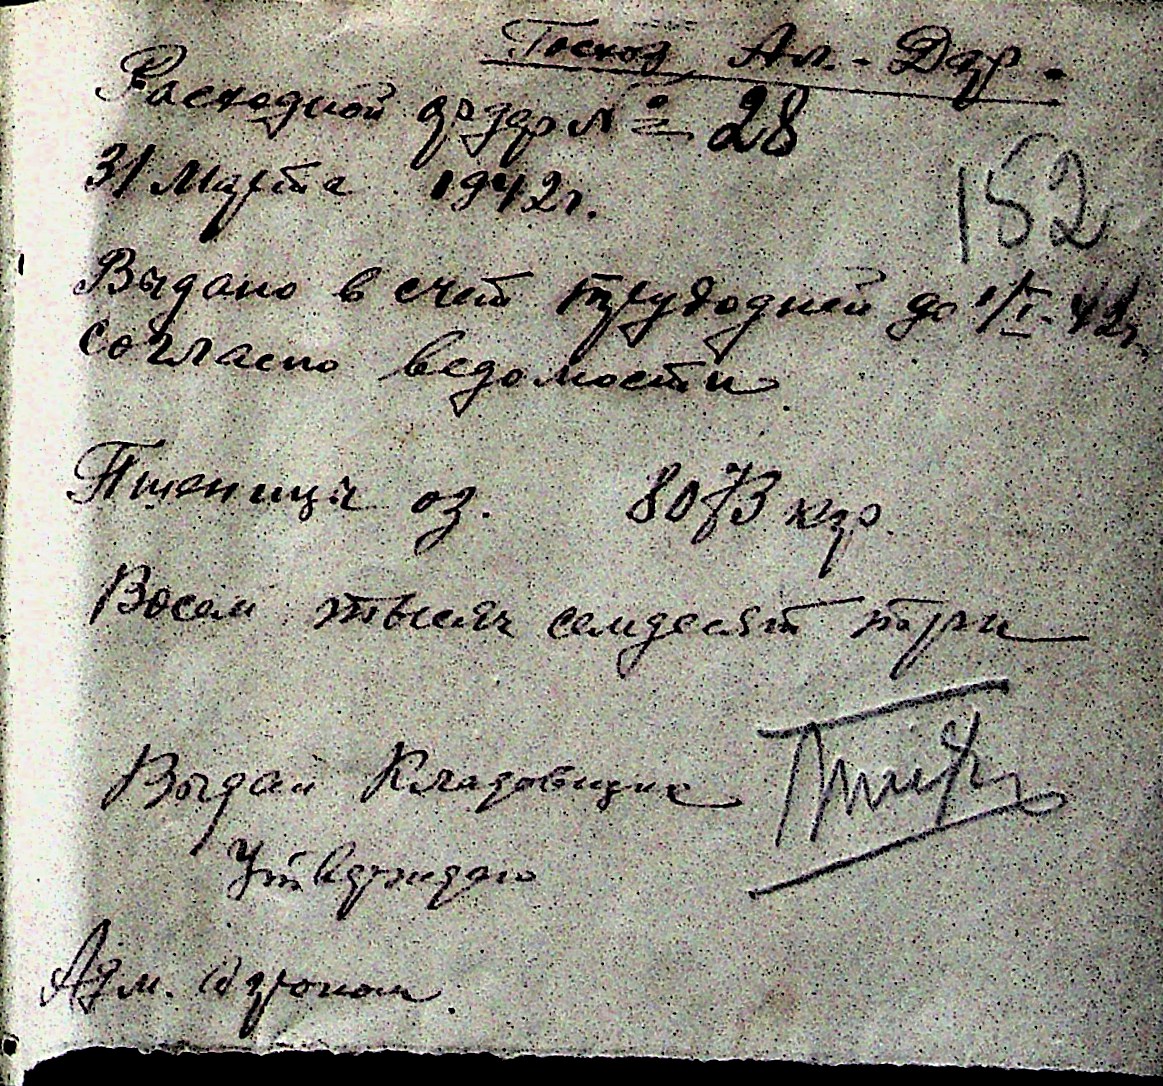 Госхоз Ал. - Дар.
Расходной ордер № 28
31 Марта 1942 г.
152
Выдано в счет трудодней до 1/I - 42 г.
согласно ведомости
Пшеница оз. 8073 кгр.
Восем тысяч семдесят три
Выдал Кладовщик
Утверждаю
Адм. Агроном